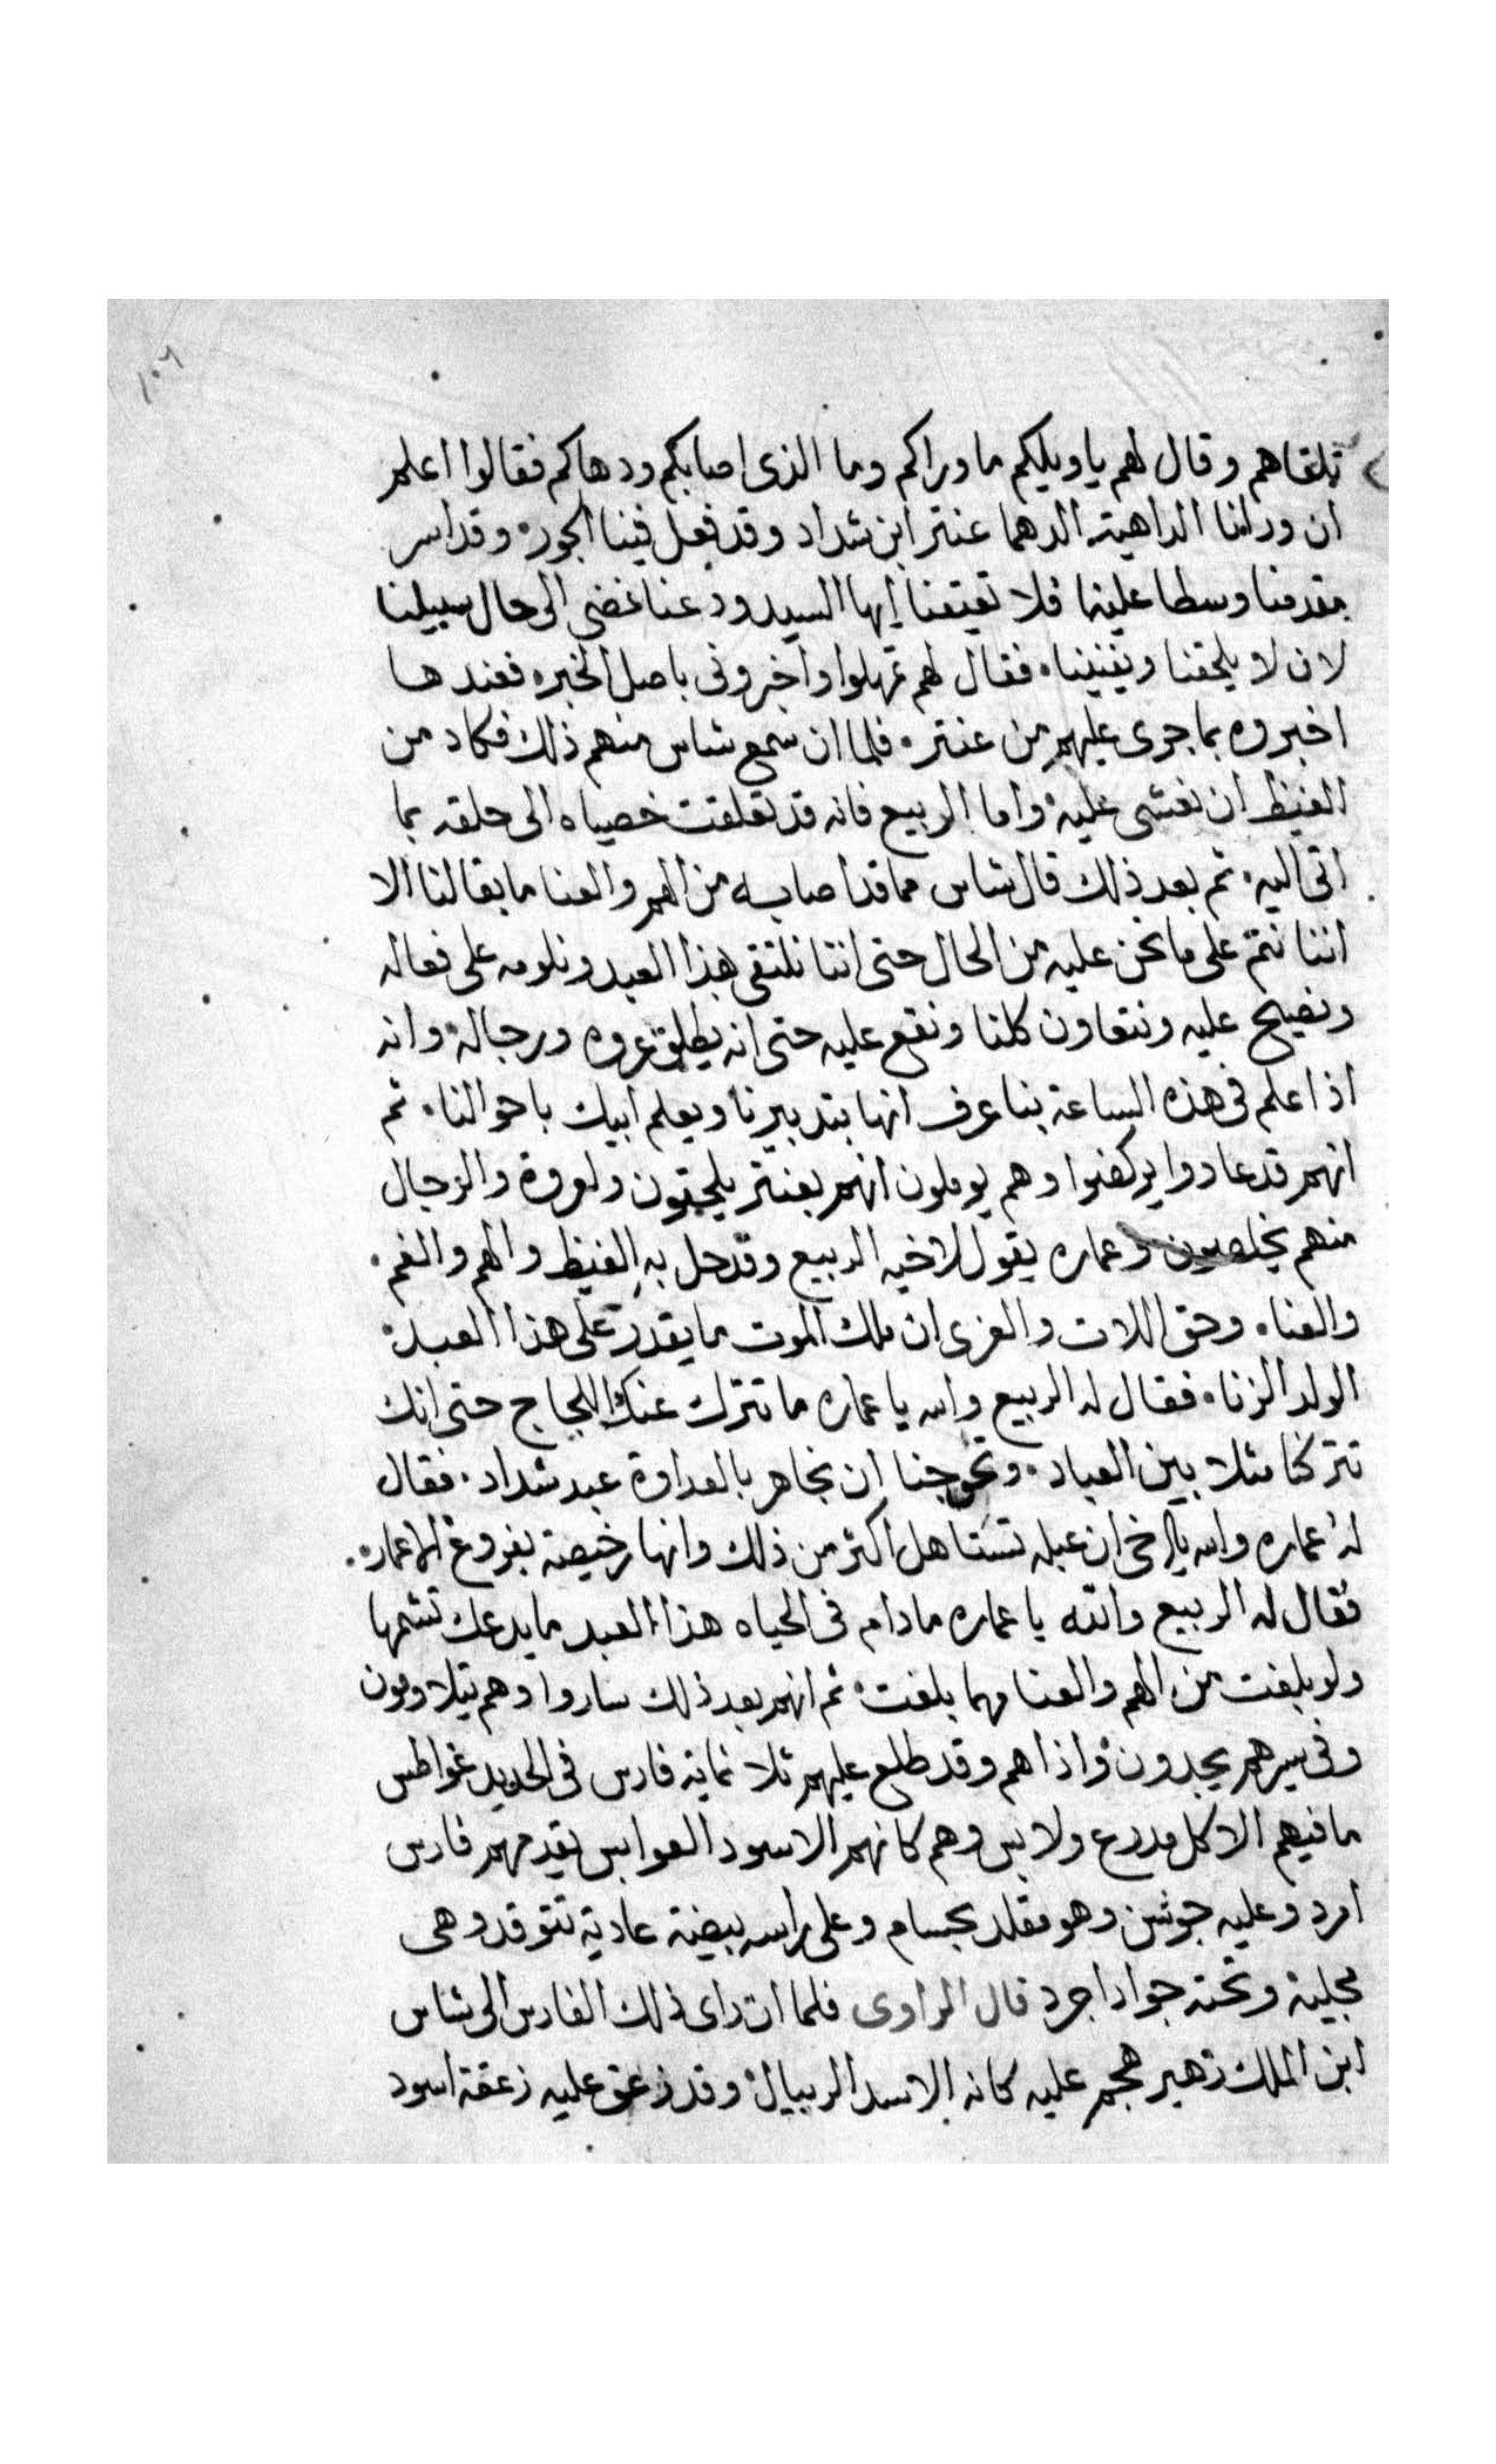 ١٠٦
تلقاهم وقال لهم يا ويلكم ما وراكم وما الذى اصابكم ودهاكم فقالوا اعلم
ان ورائنا الداهيه الدهما عنتر ابن شداد وقد فعل فينا الجوره وقد اسر
مقدمنا وسطا علينا فلا تعيقنا ايها السيد ودعنا نمضى الى حال سبيلنا
لان لا يلحقنا ويفنينا، فقال لهم تمهلوا واخبرونى باصل الخبر، فعندها
اخبروه بما جرى عليهم من عنتر، فلما ان سمع شاس منهم ذلك فكاد من
الغيظ ان يغشى عليه، واما الربيع فانه قد تعلقت خصياه الى حلقه بما
اتى اليه، ثم بعد ذلك قال شاس مما قد اصابه من الهم والعنا ما بقا لنا الا
اننا نتم على ما نحن عليه من الحال حتى اننا نلتقى هذا العبد ونلومه على فعاله
ونصيح عليه ونتعاون كلنا ونقع عليه حتى انه يطلق عروه ورجاله، وانه
اذا علم فى هذه الساعة بنا عرف انها بتدبيرنا ويعلم ابيك باحوالنا، ثم
انهم قد عادوا يركضوا وهم يوملون انهم بعنتر يلحقون ولعروة والرجال
منهم يخلصون وعماره يقول لاخيه الربيع وقد حل به الغيظ والهم والغم،
والعنا، وحق اللات والعزى ان ملك الموت ما يقدر على هذا العبد،
الولد الزنا، فقال له الربيع والله يا عماره ما تترك عنك اللجاج حتى انك
تتركنا مثلا بين العباد، وتحوجنا ان نجاهر بالعداوة عبد شداد، فقال
له عماره والله يا اخى ان عبله تستاهل اكثر من ذلك وانها رخيصة بفروغ الاعمار،
فقال له الربيع والله يا عماره مادام فى الحياه هذا العبد ما يدعك تشمها
ولو بلغت من الهم والعنا مهما بلغت، ثم انهم بعد ذلك ساروا وهم يتلاومون
وفى سيرهم يجدون، واذا هم وقد طلع عليهم ثلاثماية فارس فى الحديد غواطس
ما فيهم الا كل مدرع ولابس وهم كانهم الاسود العوابس يقدمهم فارس
امرد وعليه جوشن وهو مقلد بحسام وعلى راسه بيضة عادية تتوقد وهى
مجلية وتحته جواد اجرد قال الراوى فلما ان راى ذلك الفارس الى شاس
ابن الملك زهير هجم عليه كانه الاسد الريبال، وقد زعق عليه زعقة اسود